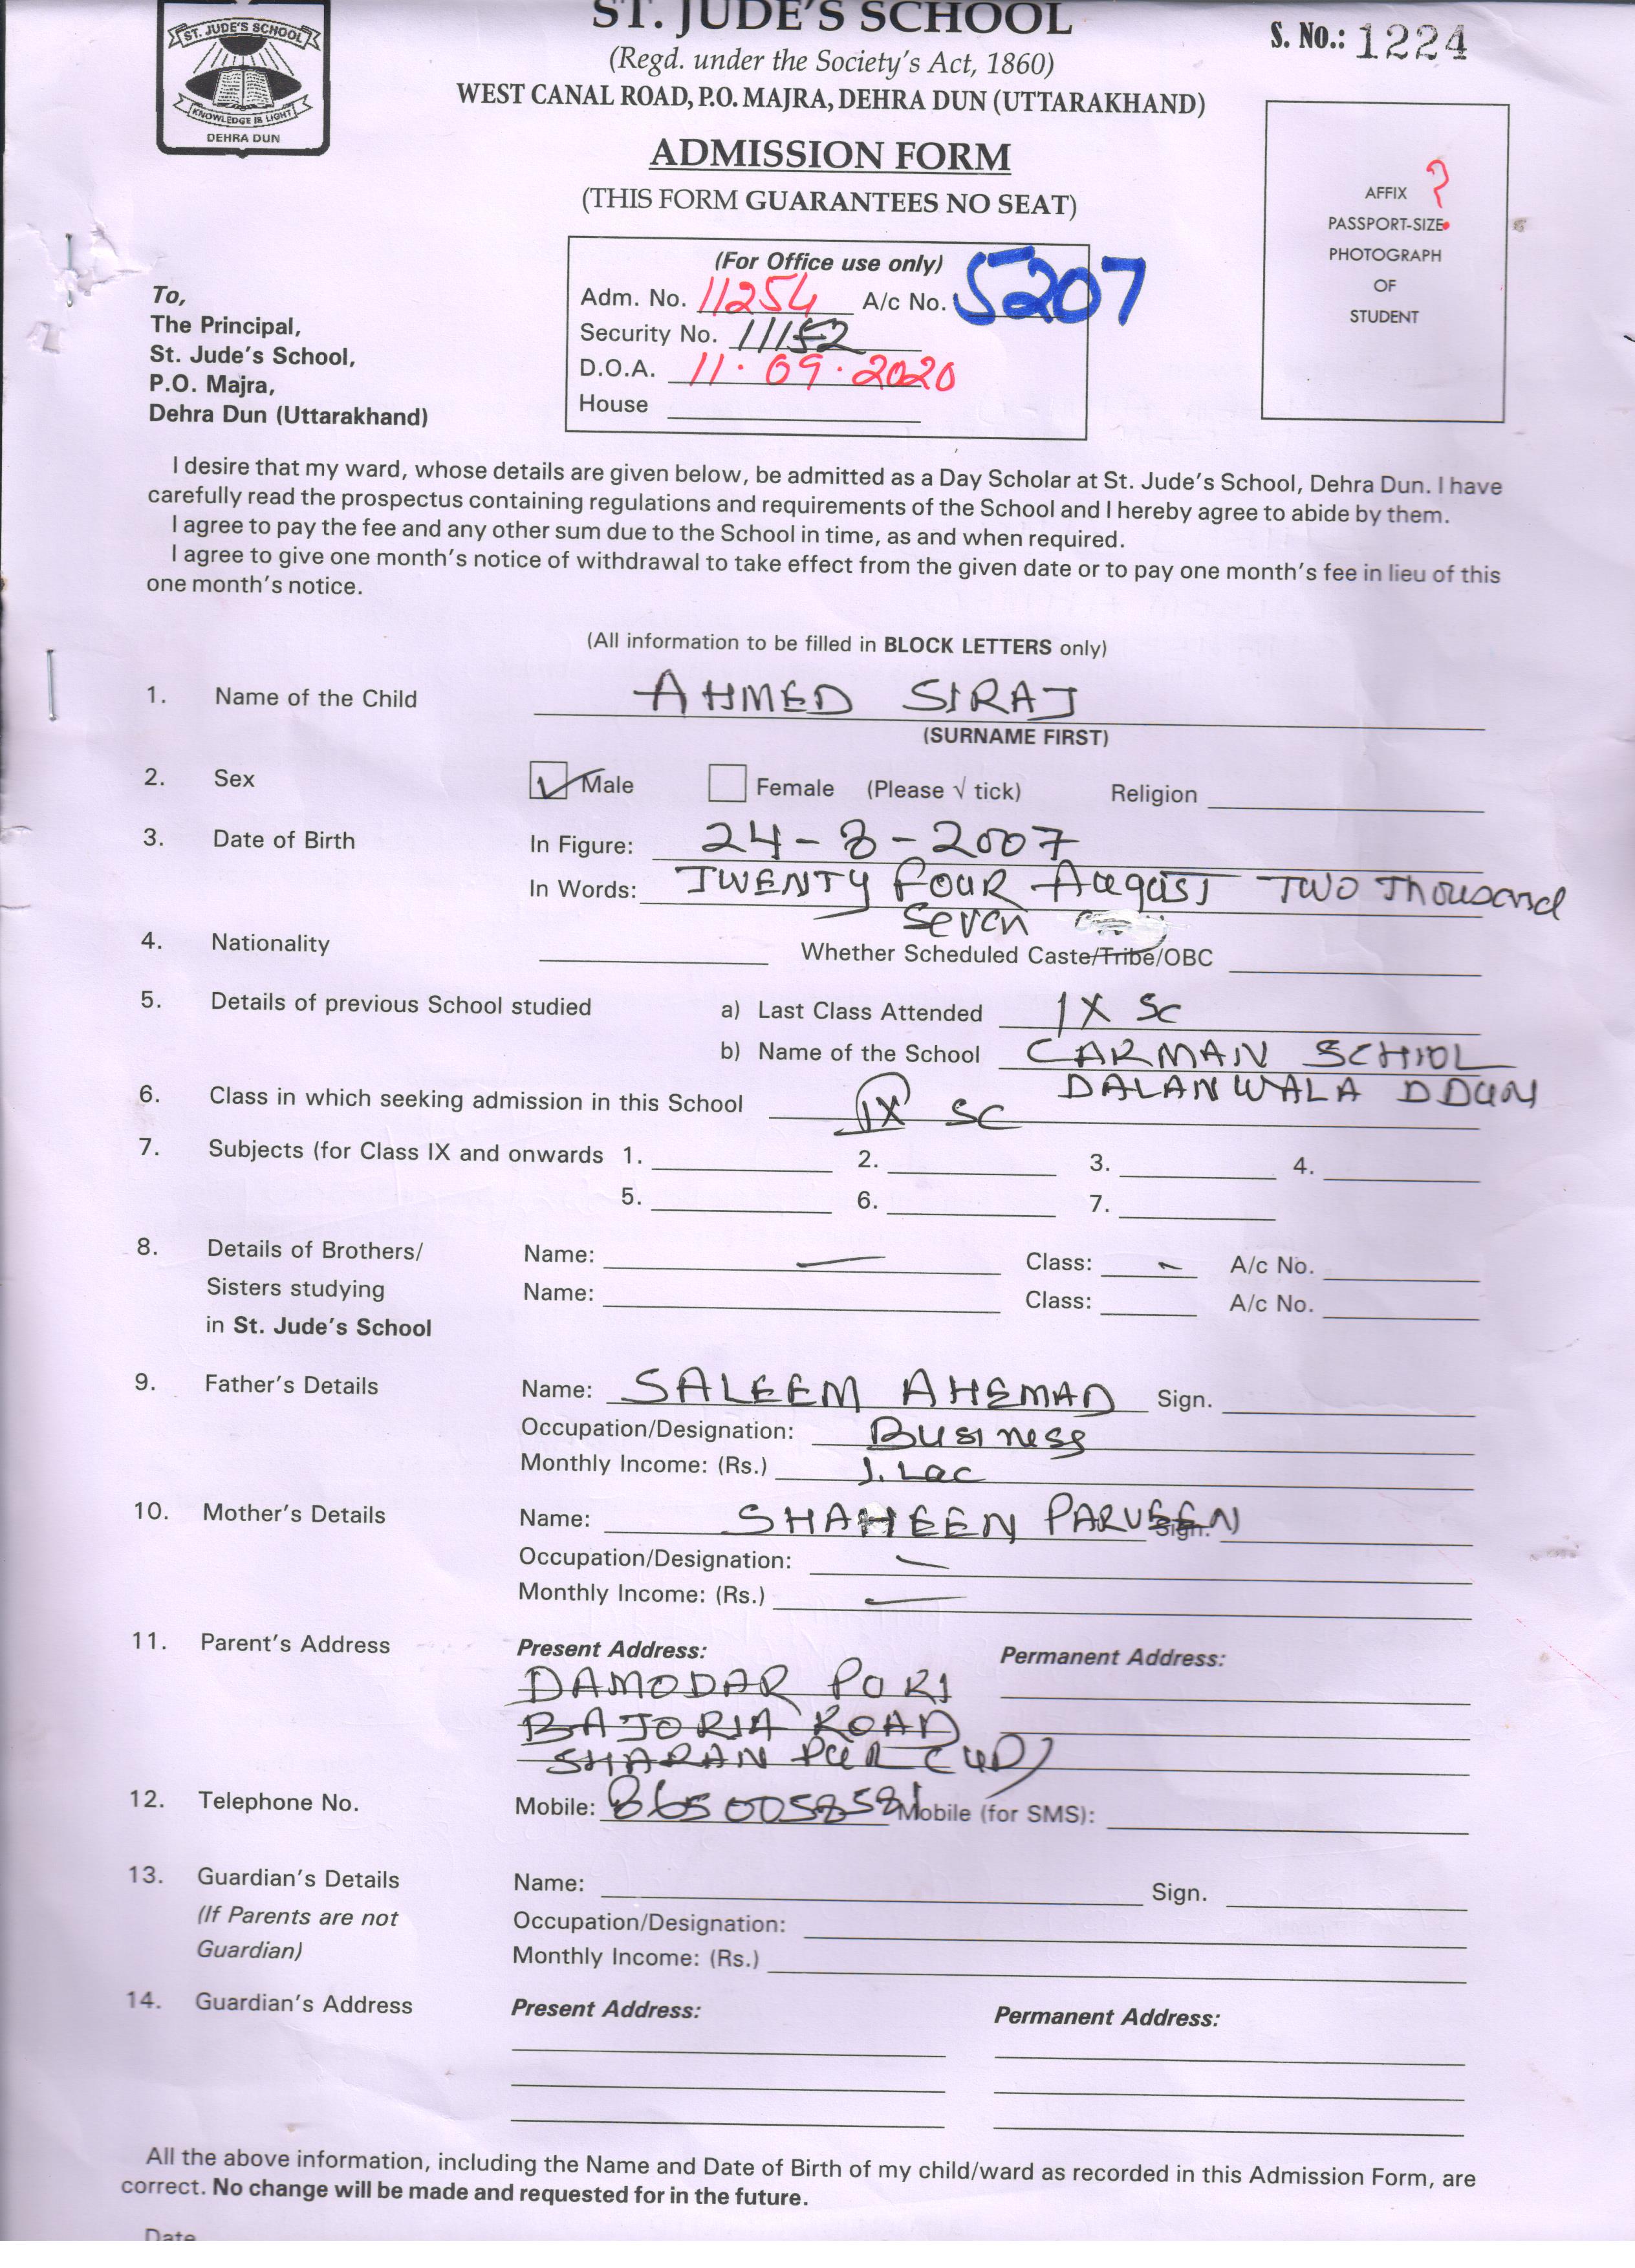 ST. JUDE'S SCHOOL
DEHRA DUN
KNOWLEDGE IS LIGHT
ST. JUDE'S SCHOOL
(Regd. under the Society's Act, 1860)
WEST CANAL ROAD, P.O. MAJRA, DEHRA DUN (UTTARAKHAND)
S. No.: 1224
ADMISSION FORM
(THIS FORM GUARANTEES NO SEAT)
AFFIX ?
PASSPORT-SIZE
PHOTOGRAPH
OF
STUDENT
(For Office use only)
Adm. No. 11254 A/c No. 5207
Security No. 11152
D.O.A. 11.09.2020
House
To,
The Principal,
St. Jude's School,
P.O. Majra,
Dehra Dun (Uttarakhand)
I desire that my ward, whose details are given below, be admitted as a Day Scholar at St. Jude's School, Dehra Dun. I have
carefully read the prospectus containing regulations and requirements of the School and I hereby agree to abide by them.
I agree to pay the fee and any other sum due to the School in time, as and when required.
I agree to give one month's notice of withdrawal to take effect from the given date or to pay one month's fee in lieu of this
one month's notice.
(All information to be filled in BLOCK LETTERS only)
1. Name of the Child AHMED SIRAJ
(SURNAME FIRST)
2. Sex ✓ Male Female (Please √ tick) Religion
3. Date of Birth In Figure: 24-8-2007
In Words: TWENTY FOUR August TWO Thousand
Seven
4. Nationality Whether Scheduled Caste/Tribe/OBC
5. Details of previous School studied a) Last Class Attended IX SC
b) Name of the School CARMAN SCHOOL
DALANWALA DDUN
6. Class in which seeking admission in this School IX SC
7. Subjects (for Class IX and onwards 1. 2. 3. 4.
5. 6. 7.
8. Details of Brothers/ Name: — Class: — A/c No.
Sisters studying Name: Class: A/c No.
in St. Jude's School
9. Father's Details Name: SALEEM AHEMAD Sign.
Occupation/Designation: Business
Monthly Income: (Rs.) 1. Lac
10. Mother's Details Name: SHAHEEN PARVEEN Sign.
Occupation/Designation: —
Monthly Income: (Rs.) —
11. Parent's Address Present Address: Permanent Address:
DAMODAR PORI
BAJORIA ROAD
SHARAN PUR (UP)
12. Telephone No. Mobile: 8650058581 Mobile (for SMS):
13. Guardian's Details Name: Sign.
(If Parents are not Occupation/Designation:
Guardian) Monthly Income: (Rs.)
14. Guardian's Address Present Address: Permanent Address:
All the above information, including the Name and Date of Birth of my child/ward as recorded in this Admission Form, are
correct. No change will be made and requested for in the future.
Date